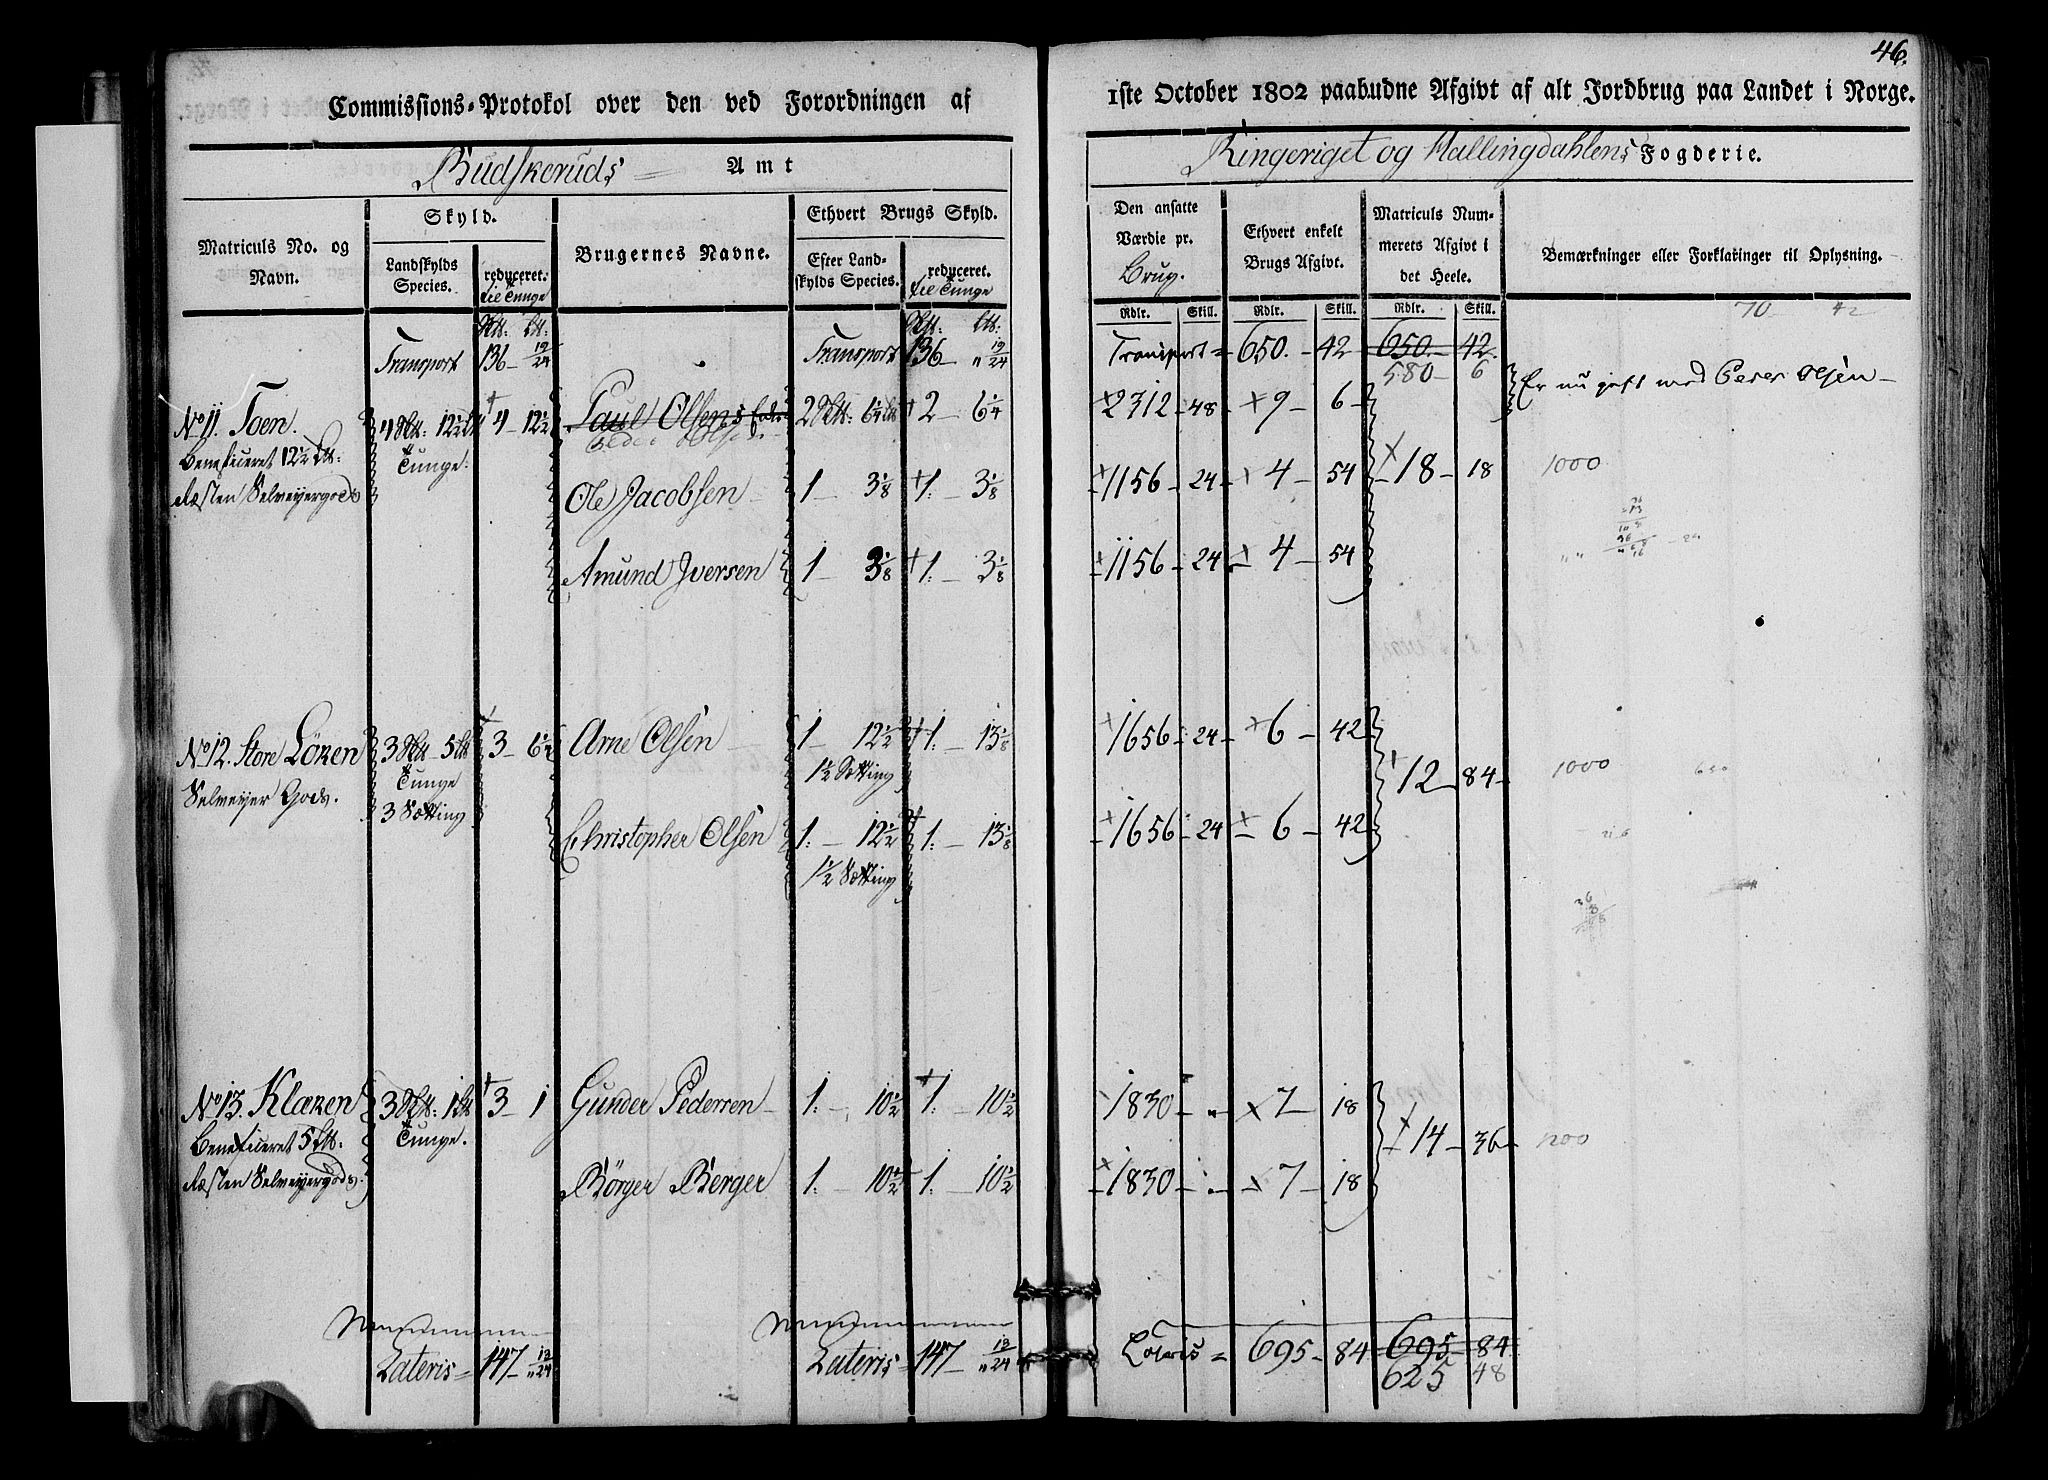 46.
Commissions-Protokol over den ved Forordningen af 1ste October 1802 paabudne Afgivt af alt Jordbrug paa Landet i Norge.
Budskeruds Amt
Ringeriget og Hallingdahlens Fogderie.
Matriculs No. og Navn.
Skyld.
Landskylds Species.
reduceret.
til Tunge
Brugernes Navne.
Ethvert Brugs Skyld.
Efter Landskylds Species.
reduceret.
til Tunge
Den ansatte Værdie pr. Brug.
Ethvert enkelt Brugs Afgivt.
Matriculs Nummerets Afgivt i det Heele.
Bemærkninger eller Forklaringer til Oplysning.
Rdlr. Skill. Rdlr. Skill. Rdlr. Skill.
70 42
Transport 136 19/24 Transport 136 " 19/24 Transport = 650. 42 650. 42.
580 6
No 11. Toen. 4 12 1/2 4 12 1/2 Paul Olsens 2 6 1/4 2 6 1/4 2312 48 9 6 Er nu gift med Peder Olsen
Beneficeret 12 1/2
Tunge.
Resten Selveyergods
Ole Jacobsen 1 3 1/8 1 3 1/8 1156 24 4 54 18 18 1000
Amund Iversen 1 3 1/8 1 3 1/8 1156 24 4 54
No 12. Store Löken 3 5 3 6 1/2 Arne Olsen 1 12 1/2 1 13 1/8 1656 24 6 42 12 84 1000
Selveyer Gods.
Tunge
3 Sætting
1 1/2 Sætting
Christopher Olsen 1 12 1/2 1 13 1/8 1656 24 6 42
1 1/2 Sætting
No 13. Klæken 3 1 3 1 Gunder Pedersen 1 10 1/2 1 10 1/2 1830 " 7 18 14 36 1200
Beneficeret 5
Tunge.
Resten Selveyergods.
Börger Berger 1 10 1/2 1 10 1/2 1830 7 18
Lateris 147 " 13/24 Lateris 147 " 13/24 Lateris = 695 84 695 84
625 48